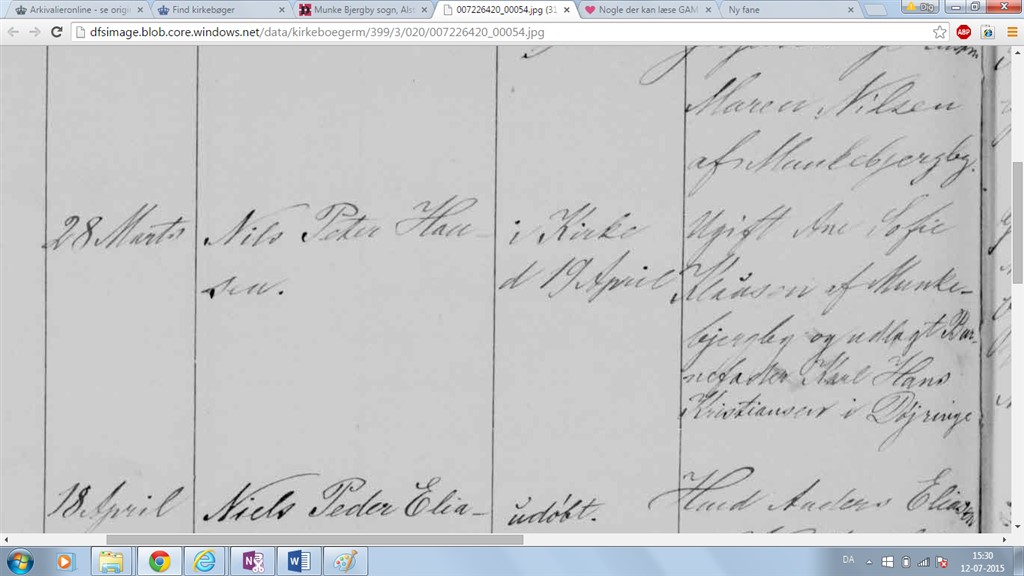 Arkivalieronline - se origi
Find kirkebøger
Munke Bjergby sogn, Alst
007226420_00054.jpg (31
Nogle der kan læse GAM
Ny fane
Dig
dfsimage.blob.core.windows.net/data/kirkeboegerm/399/3/020/007226420_00054.jpg
ABP
Maren Nilsen
af Munkebjergby.
28 Marts
Nils Peter Han-
sen.
i Kirke
d 19 April
Ugift Ane Sofie
Klausen af Munke-
bjergby og udlagt Bar-
nefader Karl Hans
Kristiansen i Døjringe
18 April
Niels Peder Elia-
udøbt.
Husmd Anders Eliasen
DA
15:30
12-07-2015